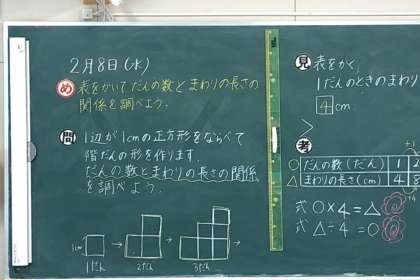 2月8日(水)
め 表をかいてだんの数とまわりの長さの
関係を調べよう.
問 1辺が1cmの正方形をならべて
階だんの形を作ります.
だんの数とまわりの長さの関係
を調べよう.
1cm
1だん
2だん
3だん
見 表をかく.
1だんのときのまわり
4 cm.
考
+1
○ だんの数(だん) 1 2
△ まわりの長さ(cm) 4 8
+4
式 ○×4=△
式 △÷4=○